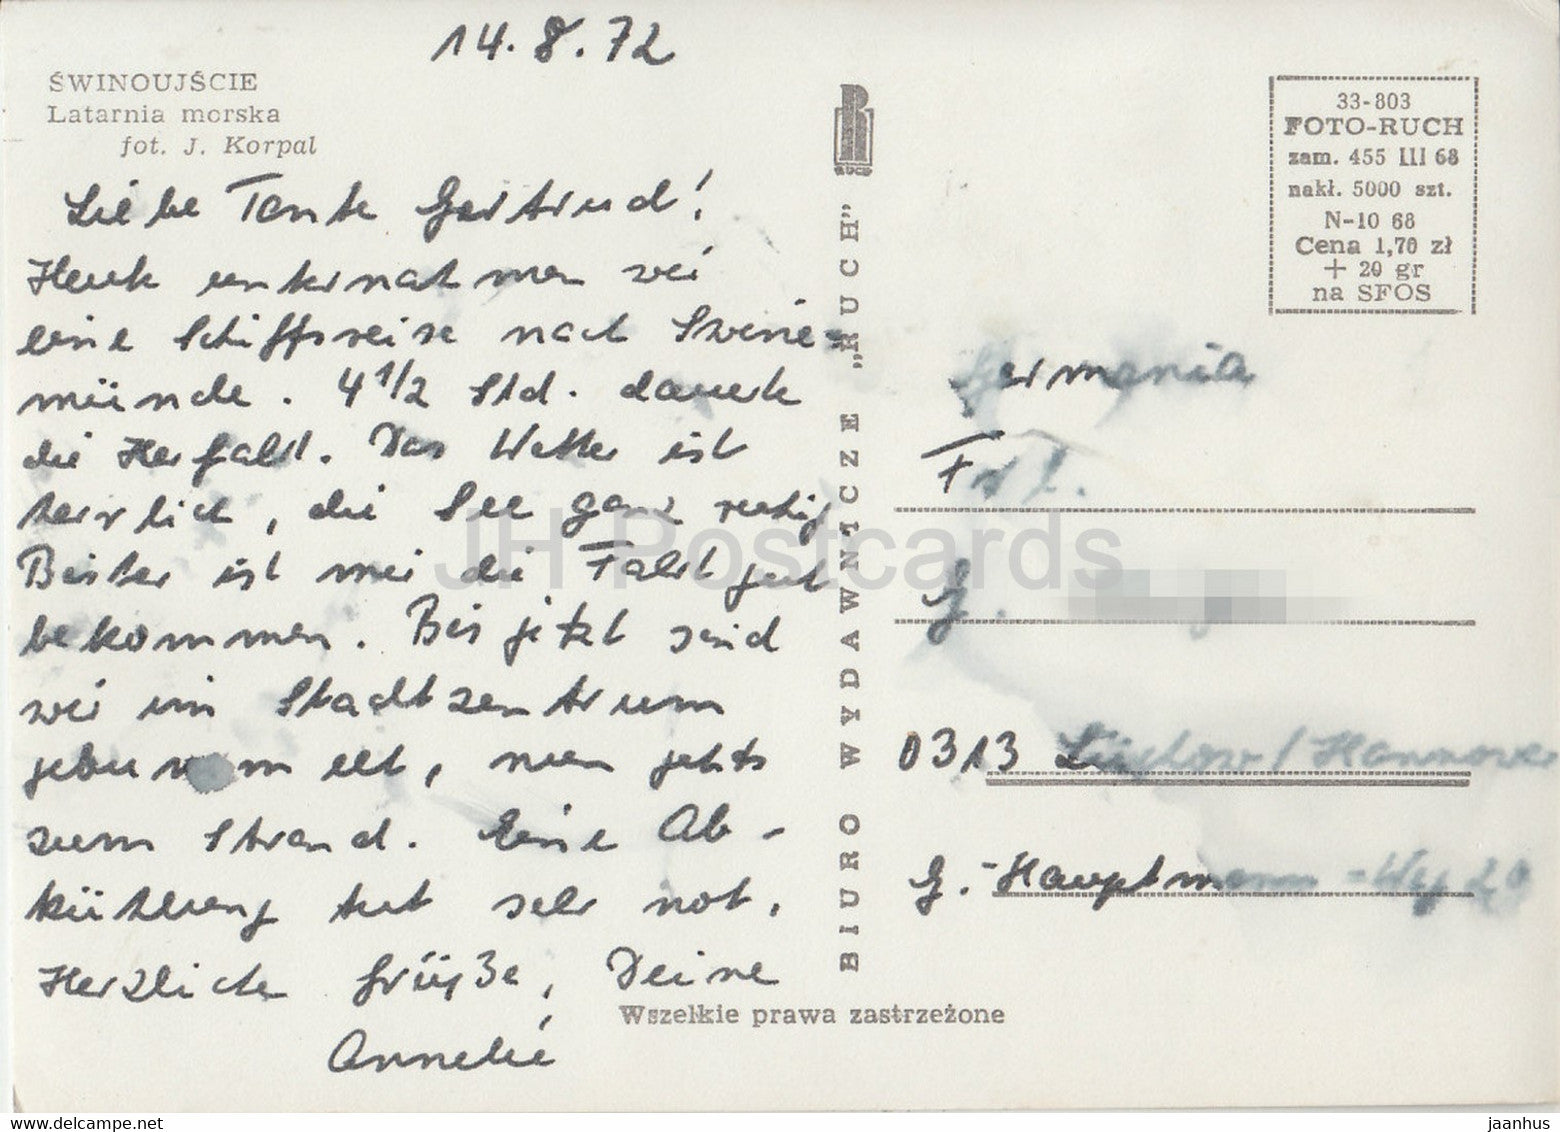 14.8.72
ŚWINOUJŚCIE
Latarnia morska
fot. J. Korpal
Liebe Tante Gertrud!
Heute unternahmen wir
eine Schiffsreise nach Swine-
münde. 4 1/2 Std. dauerte
die Herfahrt. Das Wetter ist
herrlich, die See ganz ruhig
Bisher ist mir die Fahrt gut
bekommen. Bis jetzt sind
wir im Stadtzentrum
gebummelt, nun geht's
zum Strand. Eine Ab-
kühlung tut sehr not.
Herzliche Grüße, Deine
Annelie
BIURO WYDAWNICZE „RUCH”
RUCH
33-803
FOTO-RUCH
zam. 455 III 68
nakł. 5000 szt.
N-10 68
Cena 1,70 zł
+ 20 gr
na SFOS
Germania
Frl.
G.
0313 Lüchow/Hannover
G.-Hauptmann-Weg 20
Wszelkie prawa zastrzeżone
JH Postcards
www.hippostcard.com
jaanhus